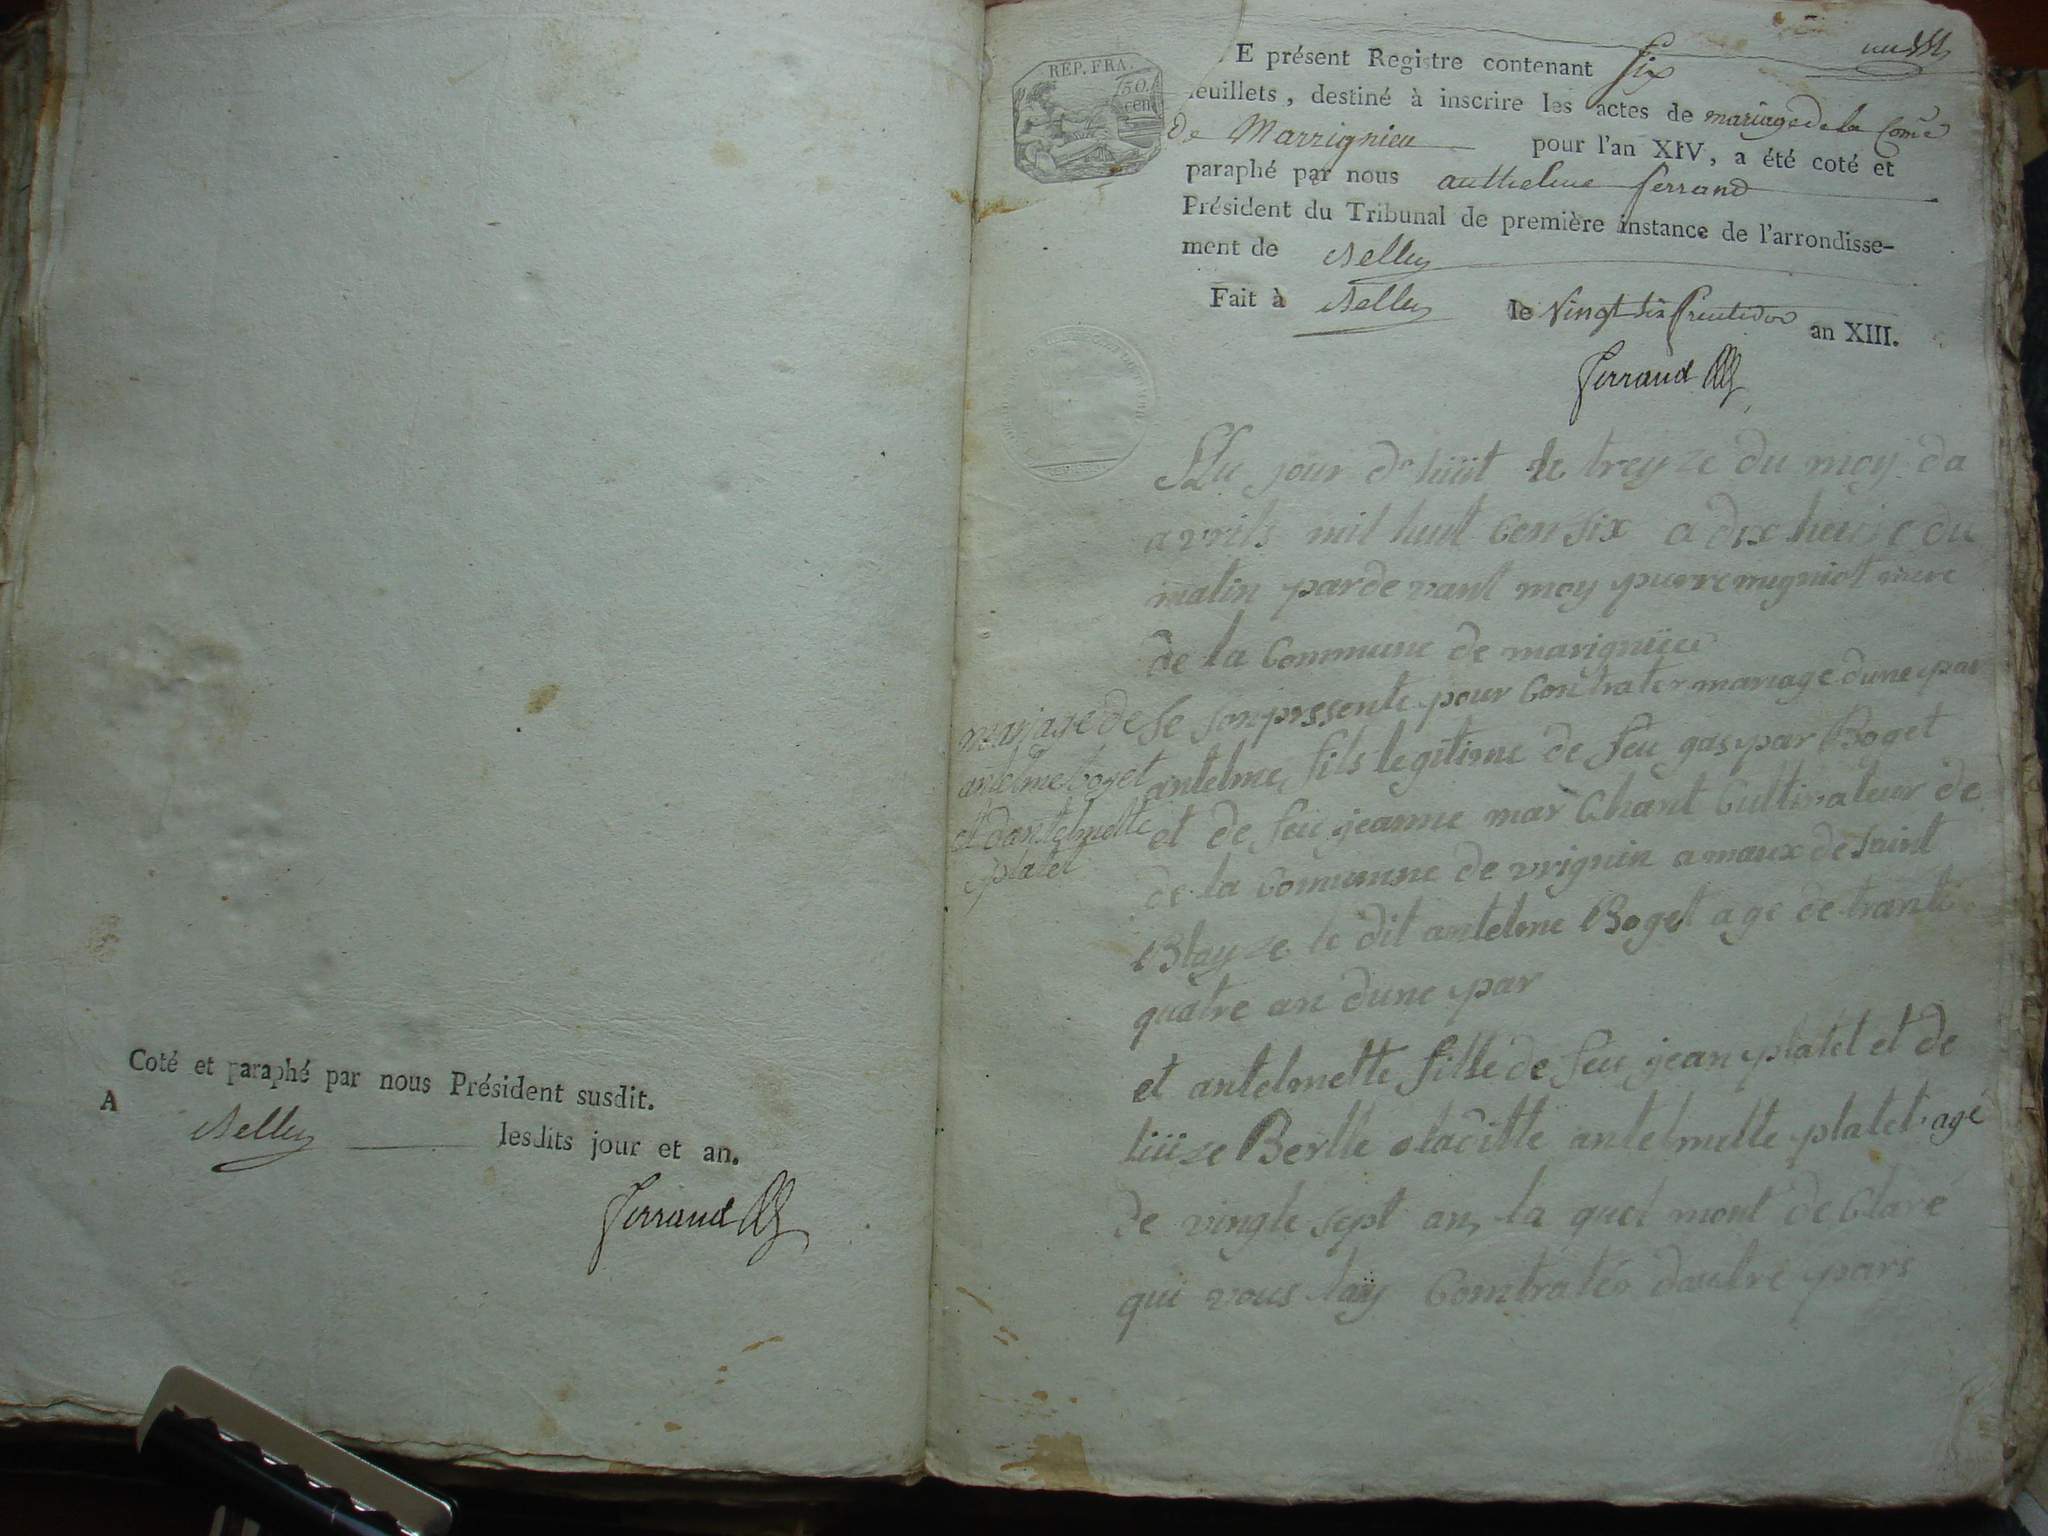 Coté et paraphé par nous Président susdit.
A Belley lesdits jour et an.
Ferrand
REP. FRA.
50.
cen
E présent Registre contenant six
feuillets, destiné à inscrire les actes de mariage de la Com̄e
de Marrignieu pour l'an XIV, a été coté et
paraphé par nous anthelme ferrand
Président du Tribunal de première instance de l'arrondisse-
ment de Belley
Fait à Belley le Vingt six fructidor an XIII.
Ferrand
Au jour d'huit le treyze du moy da
avrils mil huit Cen six a dix heure du
matin parde vant moy pierre migniot mere
de la Commune de marignieu
se son pressente pour Contrater mariage dune par
antelme fils legitime de feu gaspar Boget
et de feu jeanne mar Chant Cultivateur de
de la Commune de vrignin amaux de saint
Blayze le dit antelme Boget age de trante
quatre an dune par
et antelmette fille de feu jean platet et de
liüze Berlle laditte antelmette platet agé
de vingte sept an, la quel mont de Claré
qui vous lay Contrater dautre pars
mariage de
antelme boget
et dantelmette
platet